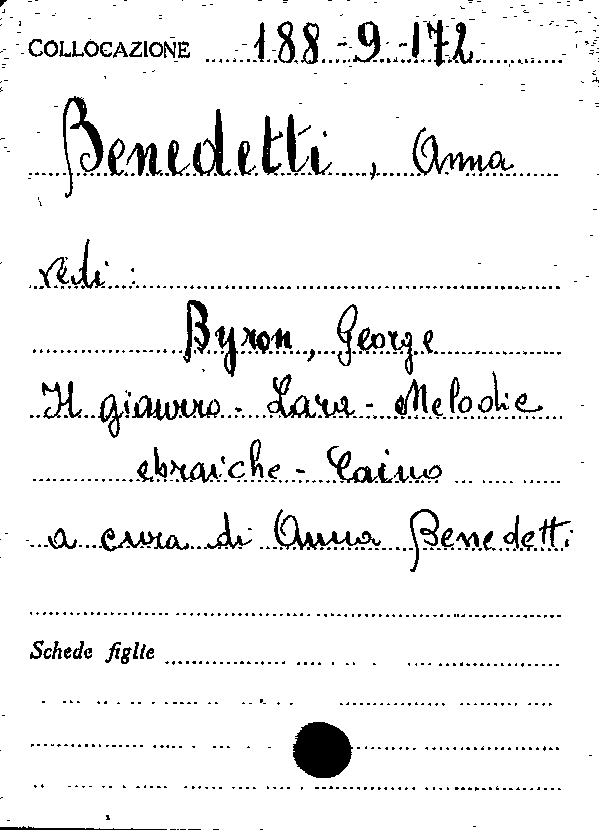 COLLOCAZIONE 188-9-172
Benedetti, Anna
vedi:
Byron, George
Il giaurro - Lara - Melodie
ebraiche - Caino
a cura di Anna Benedetti
Schede figlie